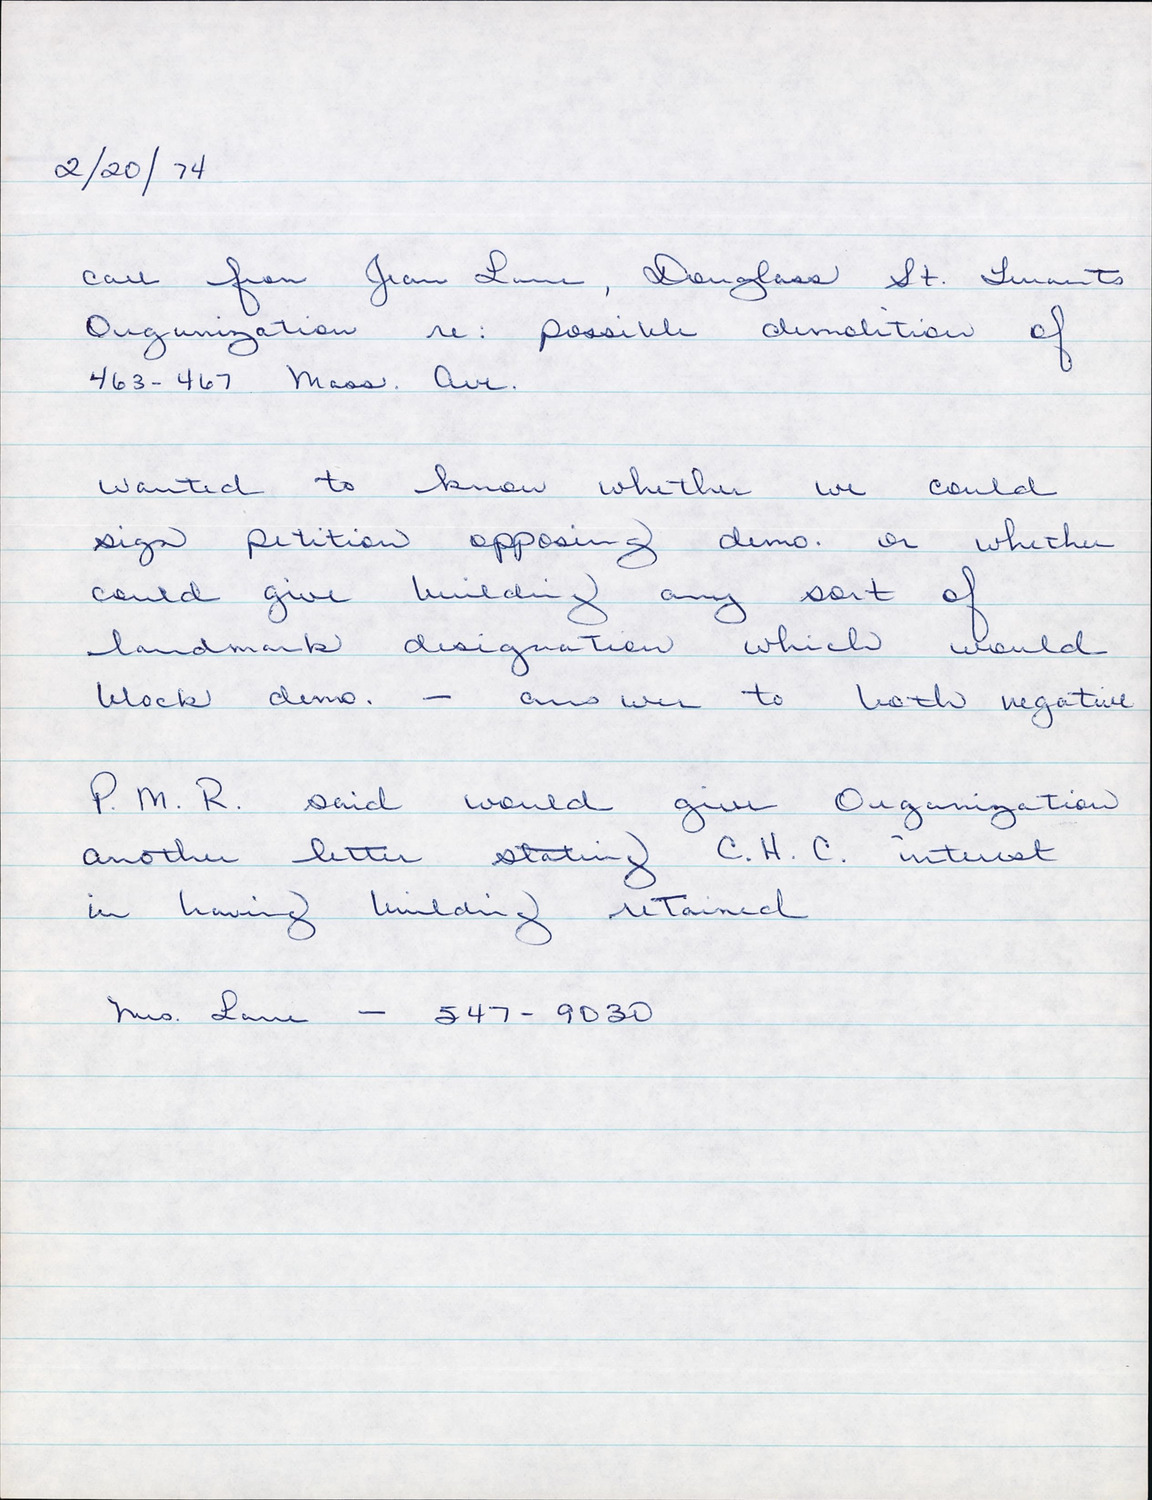 2/20/74
call from Jean Lane, Douglass St. Tenants
Organization re: possible demolition of
463-467 Mass. Ave.
wanted to know whether we could
sign petition opposing demo. or whether
could give building any sort of
landmark designation which would
block demo. — answer to both negative
P.M.R. said would give Organization
another letter stating C.H.C. interest
in having building retained
Mrs. Lane — 547-9030